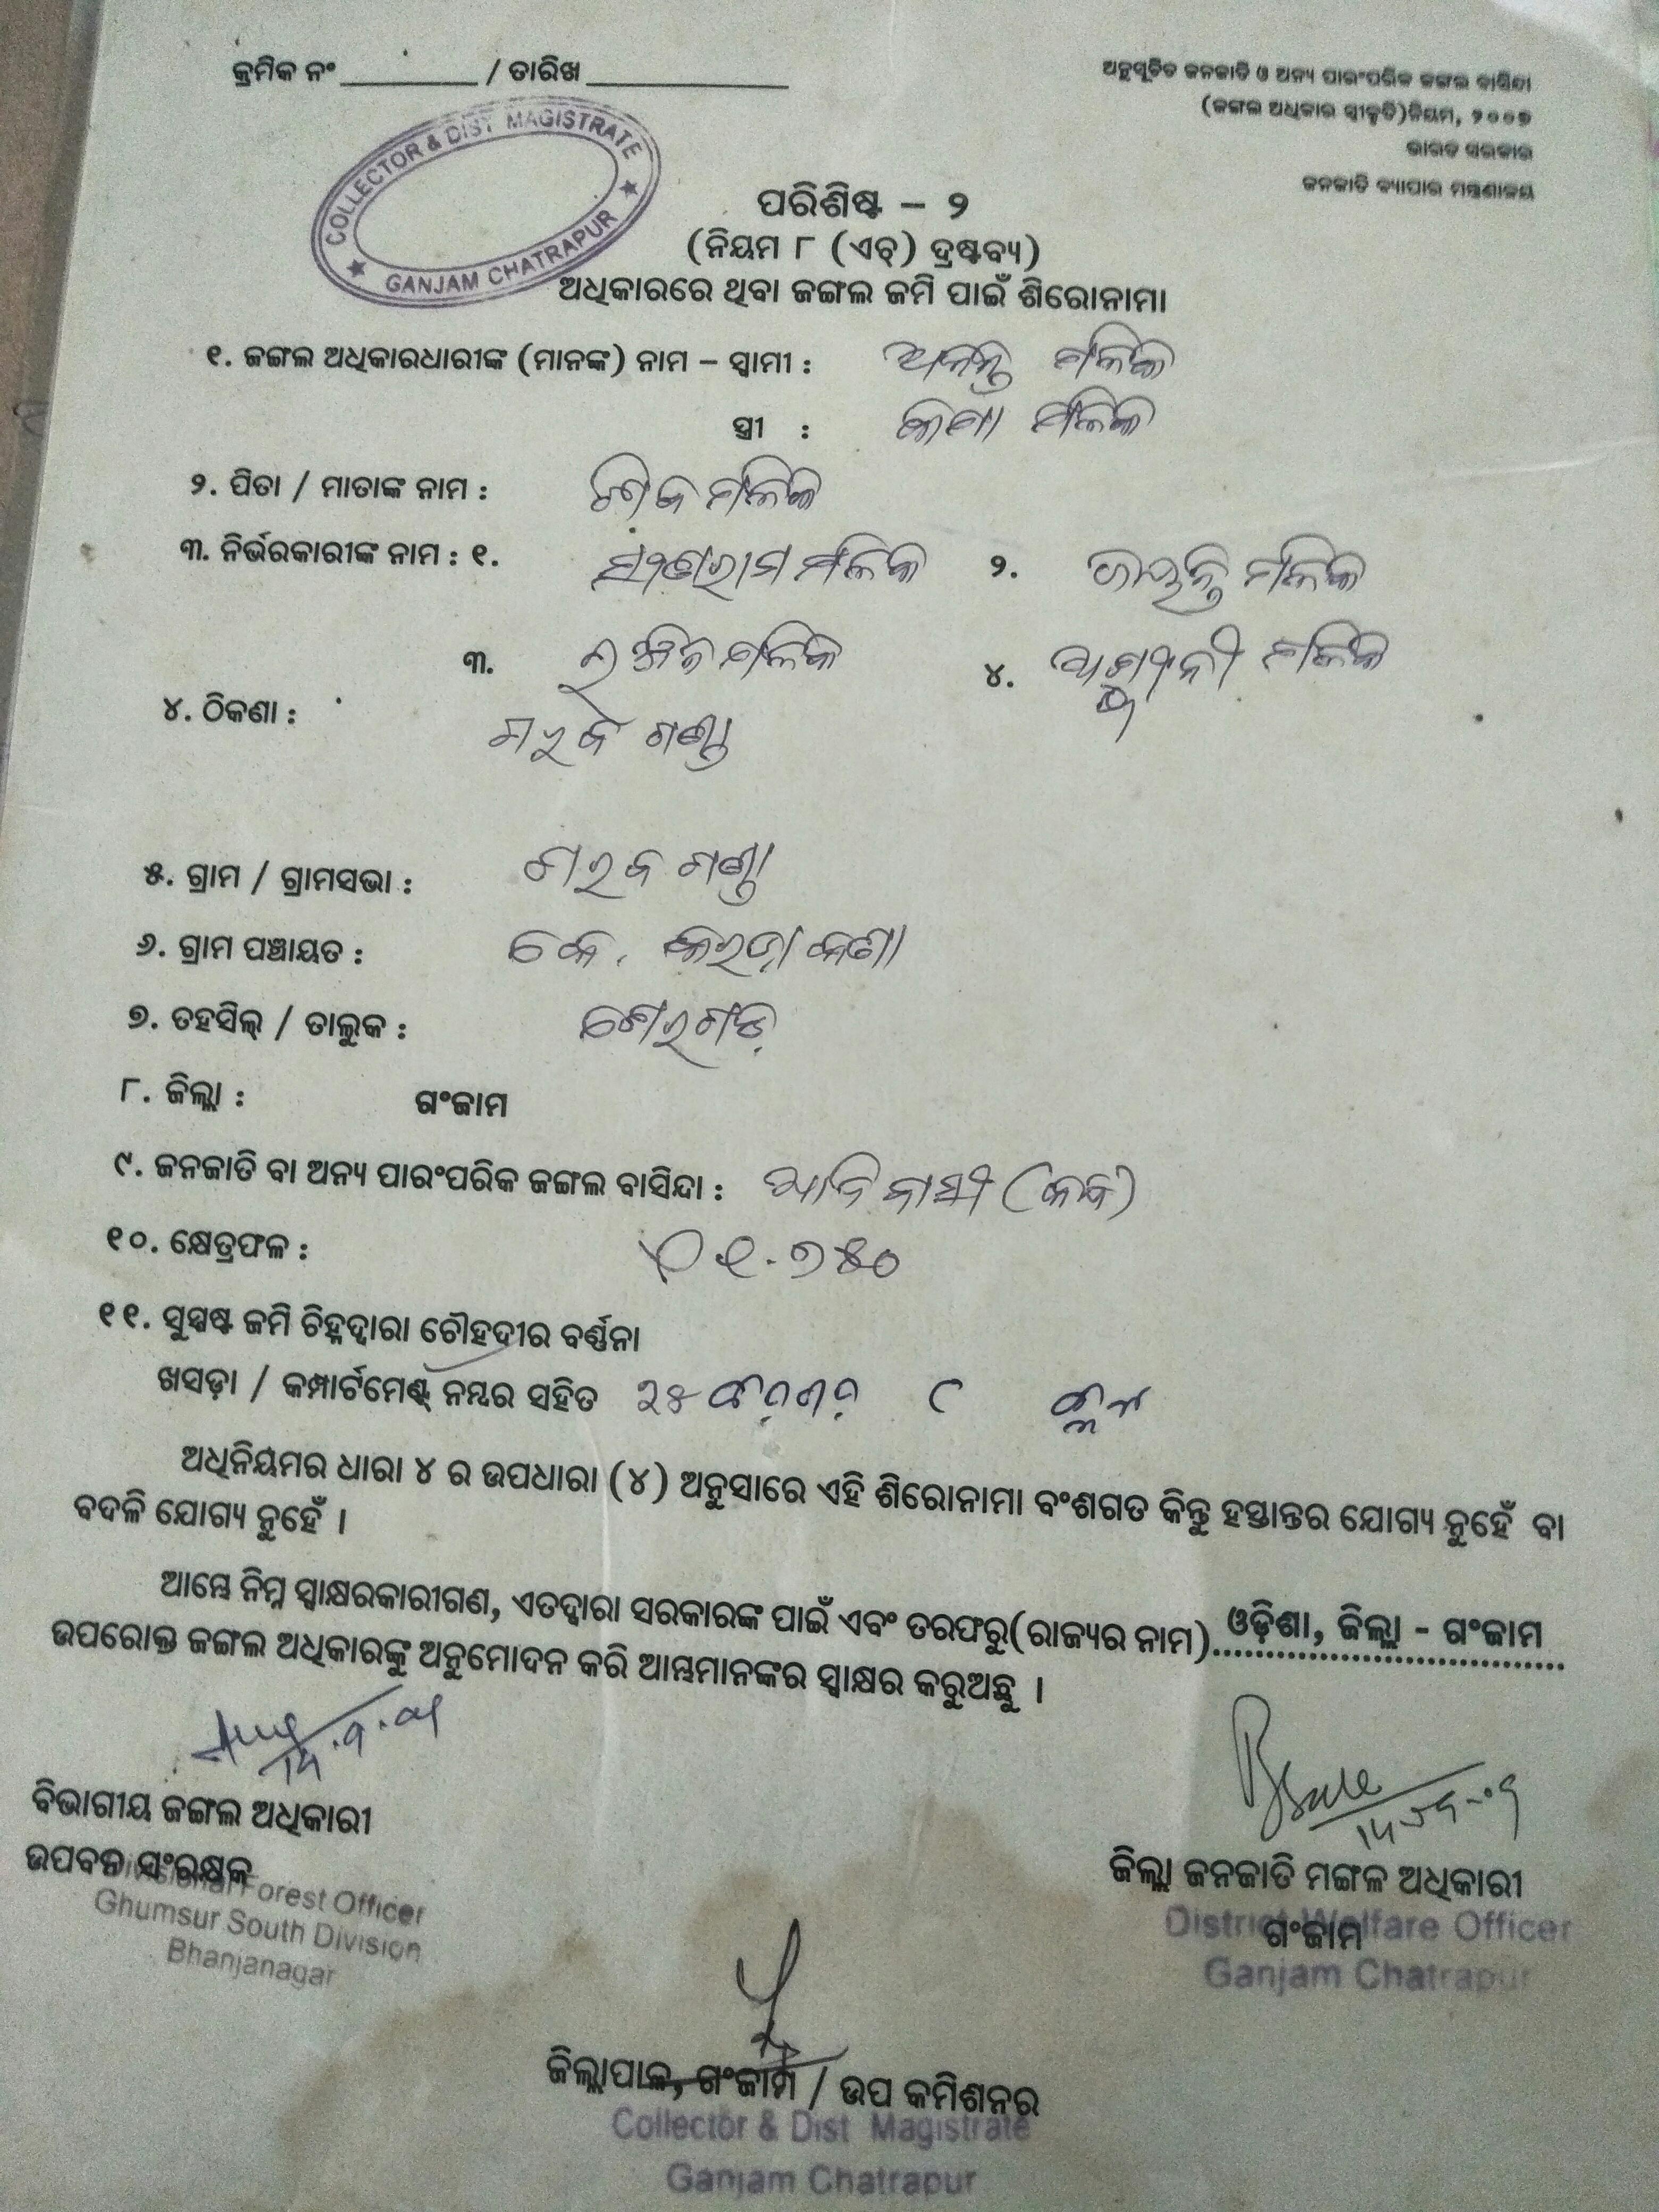 କ୍ରମିକ ନଂ / ତାରିଖ
ଅନୁସୂଚିତ ଜନଜାତି ଓ ଅନ୍ୟ ପାରଂପରିକ ଜଙ୍ଗଲ ବାସିନ୍ଦା
(ଜଙ୍ଗଲ ଅଧିକାର ସ୍ୱୀକୃତି)ନିୟମ, ୨୦୦୭
ଭାରତ ସରକାର
ଜନଜାତି ବ୍ୟାପାର ମନ୍ତ୍ରଣାଳୟ
COLLECTOR & DIST MAGISTRATE
GANJAM CHATRAPUR
ପରିଶିଷ୍ଟ – ୨
(ନିୟମ ୮ (ଏଚ୍) ଦ୍ରଷ୍ଟବ୍ୟ)
ଅଧିକାରରେ ଥିବା ଜଙ୍ଗଲ ଜମି ପାଇଁ ଶିରୋନାମା
୧. ଜଙ୍ଗଲ ଅଧିକାରଧାରୀଙ୍କ (ମାନଙ୍କ) ନାମ – ସ୍ୱାମୀ : ଅନନ୍ତ ମଳିକ
ସ୍ତ୍ରୀ : ମଳିକ
୨. ପିତା / ମାତାଙ୍କ ନାମ : ମଳିକ
୩. ନିର୍ଭରକାରୀଙ୍କ ନାମ : ୧. ମଳିକ ୨. ମଳିକ
୩. ମଳିକ ୪. ମଳିକ
୪. ଠିକଣା :
୫. ଗ୍ରାମ / ଗ୍ରାମସଭା :
୬. ଗ୍ରାମ ପଞ୍ଚାୟତ : କେ.
୭. ତହସିଲ୍ / ତାଲୁକ : ଶେରଗଡ଼
୮. ଜିଲ୍ଲା : ଗଂଜାମ
୯. ଜନଜାତି ବା ଅନ୍ୟ ପାରଂପରିକ ଜଙ୍ଗଲ ବାସିନ୍ଦା : ଆଦିବାସୀ (କନ୍ଧ)
୧୦. କ୍ଷେତ୍ରଫଳ : ୧.୭୫୦
୧୧. ସୁସ୍ପଷ୍ଟ ଜମି ଚିହ୍ନଦ୍ୱାରା ଚୌହଦୀର ବର୍ଣ୍ଣନା
ଖସଡ଼ା / କମ୍ପାର୍ଟମେଣ୍ଟ୍ ନମ୍ବର ସହିତ
ଅଧିନିୟମର ଧାରା ୪ ର ଉପଧାରା (୪) ଅନୁସାରେ ଏହି ଶିରୋନାମା ବଂଶଗତ କିନ୍ତୁ ହସ୍ତାନ୍ତର ଯୋଗ୍ୟ ନୁହେଁ ବା
ବଦଳି ଯୋଗ୍ୟ ନୁହେଁ ।
ଆମ୍ଭେ ନିମ୍ନ ସ୍ୱାକ୍ଷରକାରୀଗଣ, ଏତଦ୍ୱାରା ସରକାରଙ୍କ ପାଇଁ ଏବଂ ତରଫରୁ(ରାଜ୍ୟର ନାମ) ଓଡ଼ିଶା, ଜିଲ୍ଲା - ଗଂଜାମ
ଉପରୋକ୍ତ ଜଙ୍ଗଲ ଅଧିକାରଙ୍କୁ ଅନୁମୋଦନ କରି ଆମ୍ଭମାନଙ୍କର ସ୍ୱାକ୍ଷର କରୁଅଛୁ ।
ବିଭାଗୀୟ ଜଙ୍ଗଲ ଅଧିକାରୀ
ଉପବନ ସଂରକ୍ଷକ
Divisional Forest Officer
Ghumsur South Division
Bhanjanagar
ଜିଲ୍ଲା ଜନଜାତି ମଙ୍ଗଳ ଅଧିକାରୀ
ଗଂଜାମ
District Welfare Officer
Ganjam Chatrapur
ଜିଲ୍ଲାପାଳ, ଗଂଜାମ / ଉପ କମିଶନର
Collector & Dist Magistrate
Ganjam Chatrapur